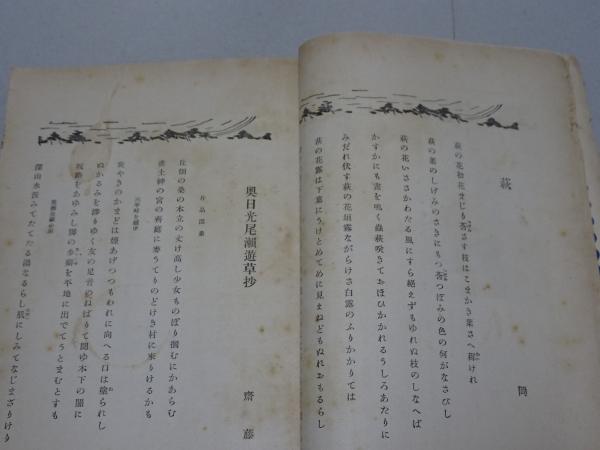 萩
岡
萩の花初花まじり莟さす枝はこまかき葉さへ
萩の葉のしげみのさきにもつ莟つぼみの色の何がなさびし
萩の花いささかわたる風にすら絶えずもゆれぬ枝のしなへば
かすかにも晝を鳴く蟲萩咲きておほひかかれるうしろあたりに
みだれ伏す萩の花垣露ながらけさ白露のふりかかりては
萩の花露は下葉にうけとめてめに見まねどもぬれおもるらし
奥日光尾瀬遊草抄
齋藤
片品
丘畑の桑の木立の丈け高し少女ものぼり摘むにかあらむ
産土神の宮の齊庭に麥うてりのどけき村に來りけるかも
炭やきのかまどは煙あげつつもわれに向へる口は塗られし
ぬかるみを滑りゆく女の足音のねばりて聞ゆ木下の闇に
坂路をあゆみし脚の歩癖を平地に出でてうとまむとすも
深山水汲みてたてたる湯なるらし肌にしみてなじまざりけり